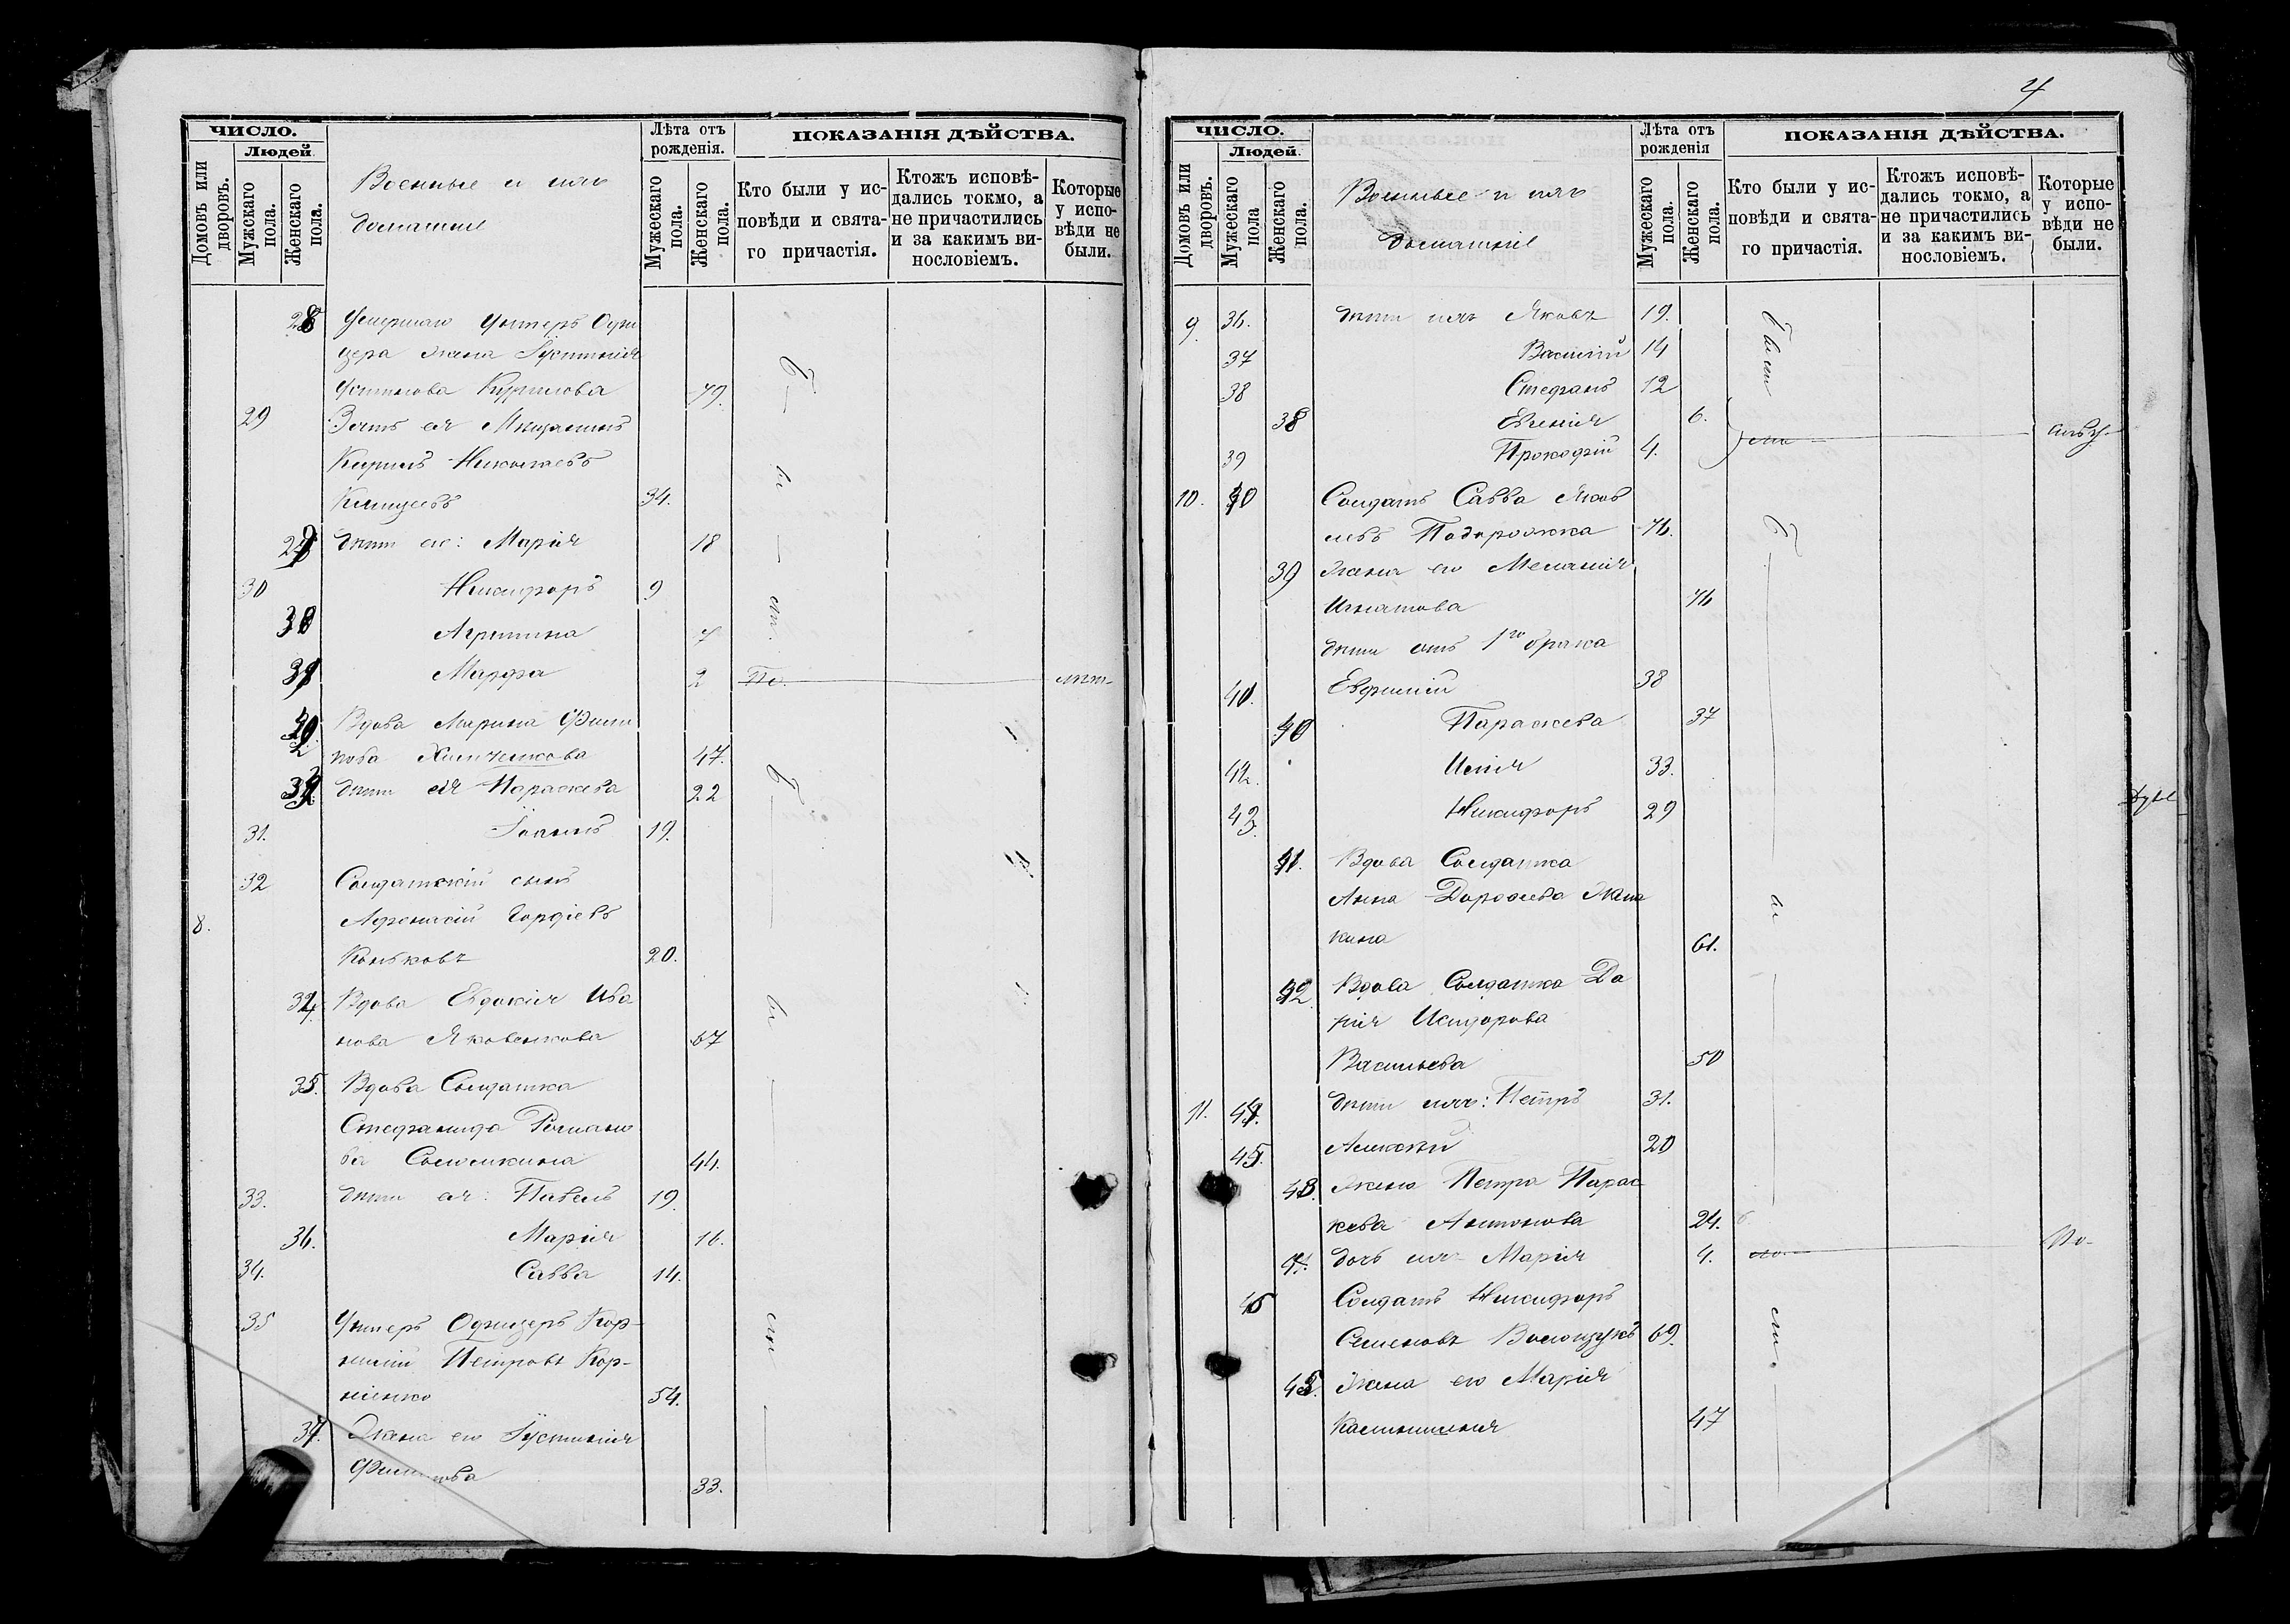 ЧИСЛО.
Людей.
Домовъ или дворовъ.
Мужскаго пола.
Женскаго пола.
Военные и ихъ
домашніе
Лѣта отъ рожденія.
Мужескаго пола.
Женскаго пола.
ПОКАЗАНІЯ ДѢЙСТВА.
Кто были у исповѣди и святаго причастія.
Ктожъ исповѣдались токмо, а не причастились и за какимъ винословіемъ.
Которые у исповѣди не были.
28 Умершаго Унтеръ Офи
цера жена Іустинія
Устинова Курилова 79.
29 Зять ея Мѣщанинъ
Кирилъ Николаевъ
34.
29 дѣти ея: Марія 18
30 Никифоръ 9
30 Агрипина 7
31 Марфа 2
Вдова Марина Фили
пова 47.
дѣти ея Параскева 22
31. Іоаннъ 19.
32 Солдатскій сынъ
8. Афанасій Гордіевъ
Коньковъ 20.
34 Вдова Евдокія Ива
нова Яковенкова 67
35. Вдова Солдатка
Стефанида Романо
ва 44.
33. дѣти ея: Павелъ 19.
36. Марія 16.
34. Савва 14.
35 Унтеръ Офицеръ Кор-
нилій Петровъ Кор-
ніенко 54.
37. Жена его Іустинія
Филипова 33.
4
ЧИСЛО.
Людей.
Домовъ или дворовъ.
Мужескаго пола
Женскаго пола.
Военные и ихъ
домашніе
Лѣта отъ рожденія
Мужескаго пола.
Женскаго пола.
ПОКАЗАНІЯ ДѢЙСТВА.
Кто были у исповѣди и святаго причастія.
Ктожъ исповѣдались токмо, а не причастились и за какимъ винословіемъ.
Которые у исповѣди не были.
9 36. дѣти ихъ Яковъ 19.
37 Василій 14
38 Стефанъ 12
38 Евгенія 6.
39 Прокофій 4.
10. 40 Солдатъ Савва Яков
левъ Подорожка 76.
39 Жена его Меланія
Игнатова 76
дѣти отъ 1го брака
40. Евфимій 38
40 Параскева 37
42. Илія 33.
43. Никифоръ 29
41. Вдова Солдатка
Анна Дорофеева
кина 61.
42 Вдова Солдатка Да
рія Исидорова
Васильева 50
11. 44. дѣти ихъ: Петръ 31.
45. Алексѣй 20
43. Жена Петра Парас
кева Антонова 24.
дочь ихъ Марія 4.
46 Солдатъ Никифоръ
Семеновъ Волощукъ 69.
45. Жена его Марія
47